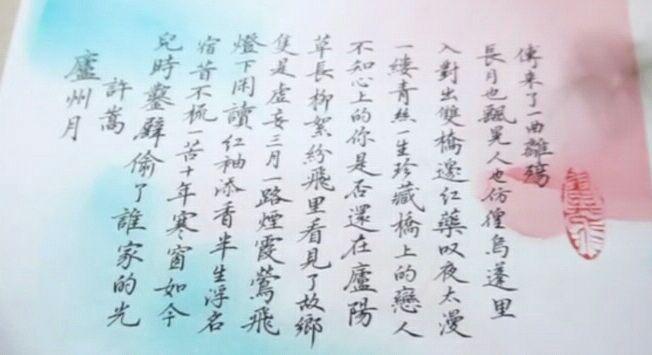 廬州月
許嵩
兒時鑿壁偷了誰家的光
宿昔不梳一苦十年寒窗如今
燈下闲讀紅袖添香半生浮名
隻是虛妄三月一路煙霞鶯飛
草長柳絮紛飛里看見了故鄉
不知心上的你是否還在廬陽
一縷青絲一生珍藏橋上的戀人
入對出雙橋邊紅藥叹夜太漫
長月也飄晃人也彷徨烏蓬里
傳來了一曲離殤